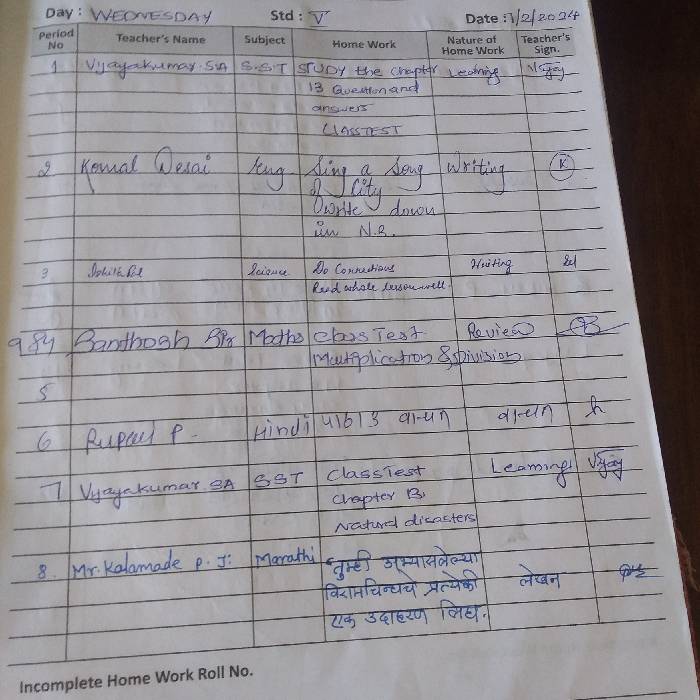 Day : WEDNESDAY Std : V Date : 1/2/2024
Period No Teacher's Name Subject Home Work Nature of Home Work Teacher's Sign.
1 Vijayakumar. SA S.ST STUDY the chapter Learning Vijay
13 Question and
answers
CLASSTEST
2 Komal Desai Eng. Sing a Song Writing K
of City
Write down
in N.B.
3 Science Do Corrections Writing
Read whole lesson well
Santhosh Maths Class Test Review
Multiplication & Division
5
6 Rupali P. Hindi पाठ 13 वाचन वाचन
7 Vijayakumar. SA SST Class Test Learning Vijay
Chapter 13.
Natural disasters
8. Mr. Kalamade P. J. Marathi तुम्ही अभ्यासलेल्या
विरामचिन्हाचे प्रत्येकी लेखन
एक उदाहरण लिहा.
Incomplete Home Work Roll No.